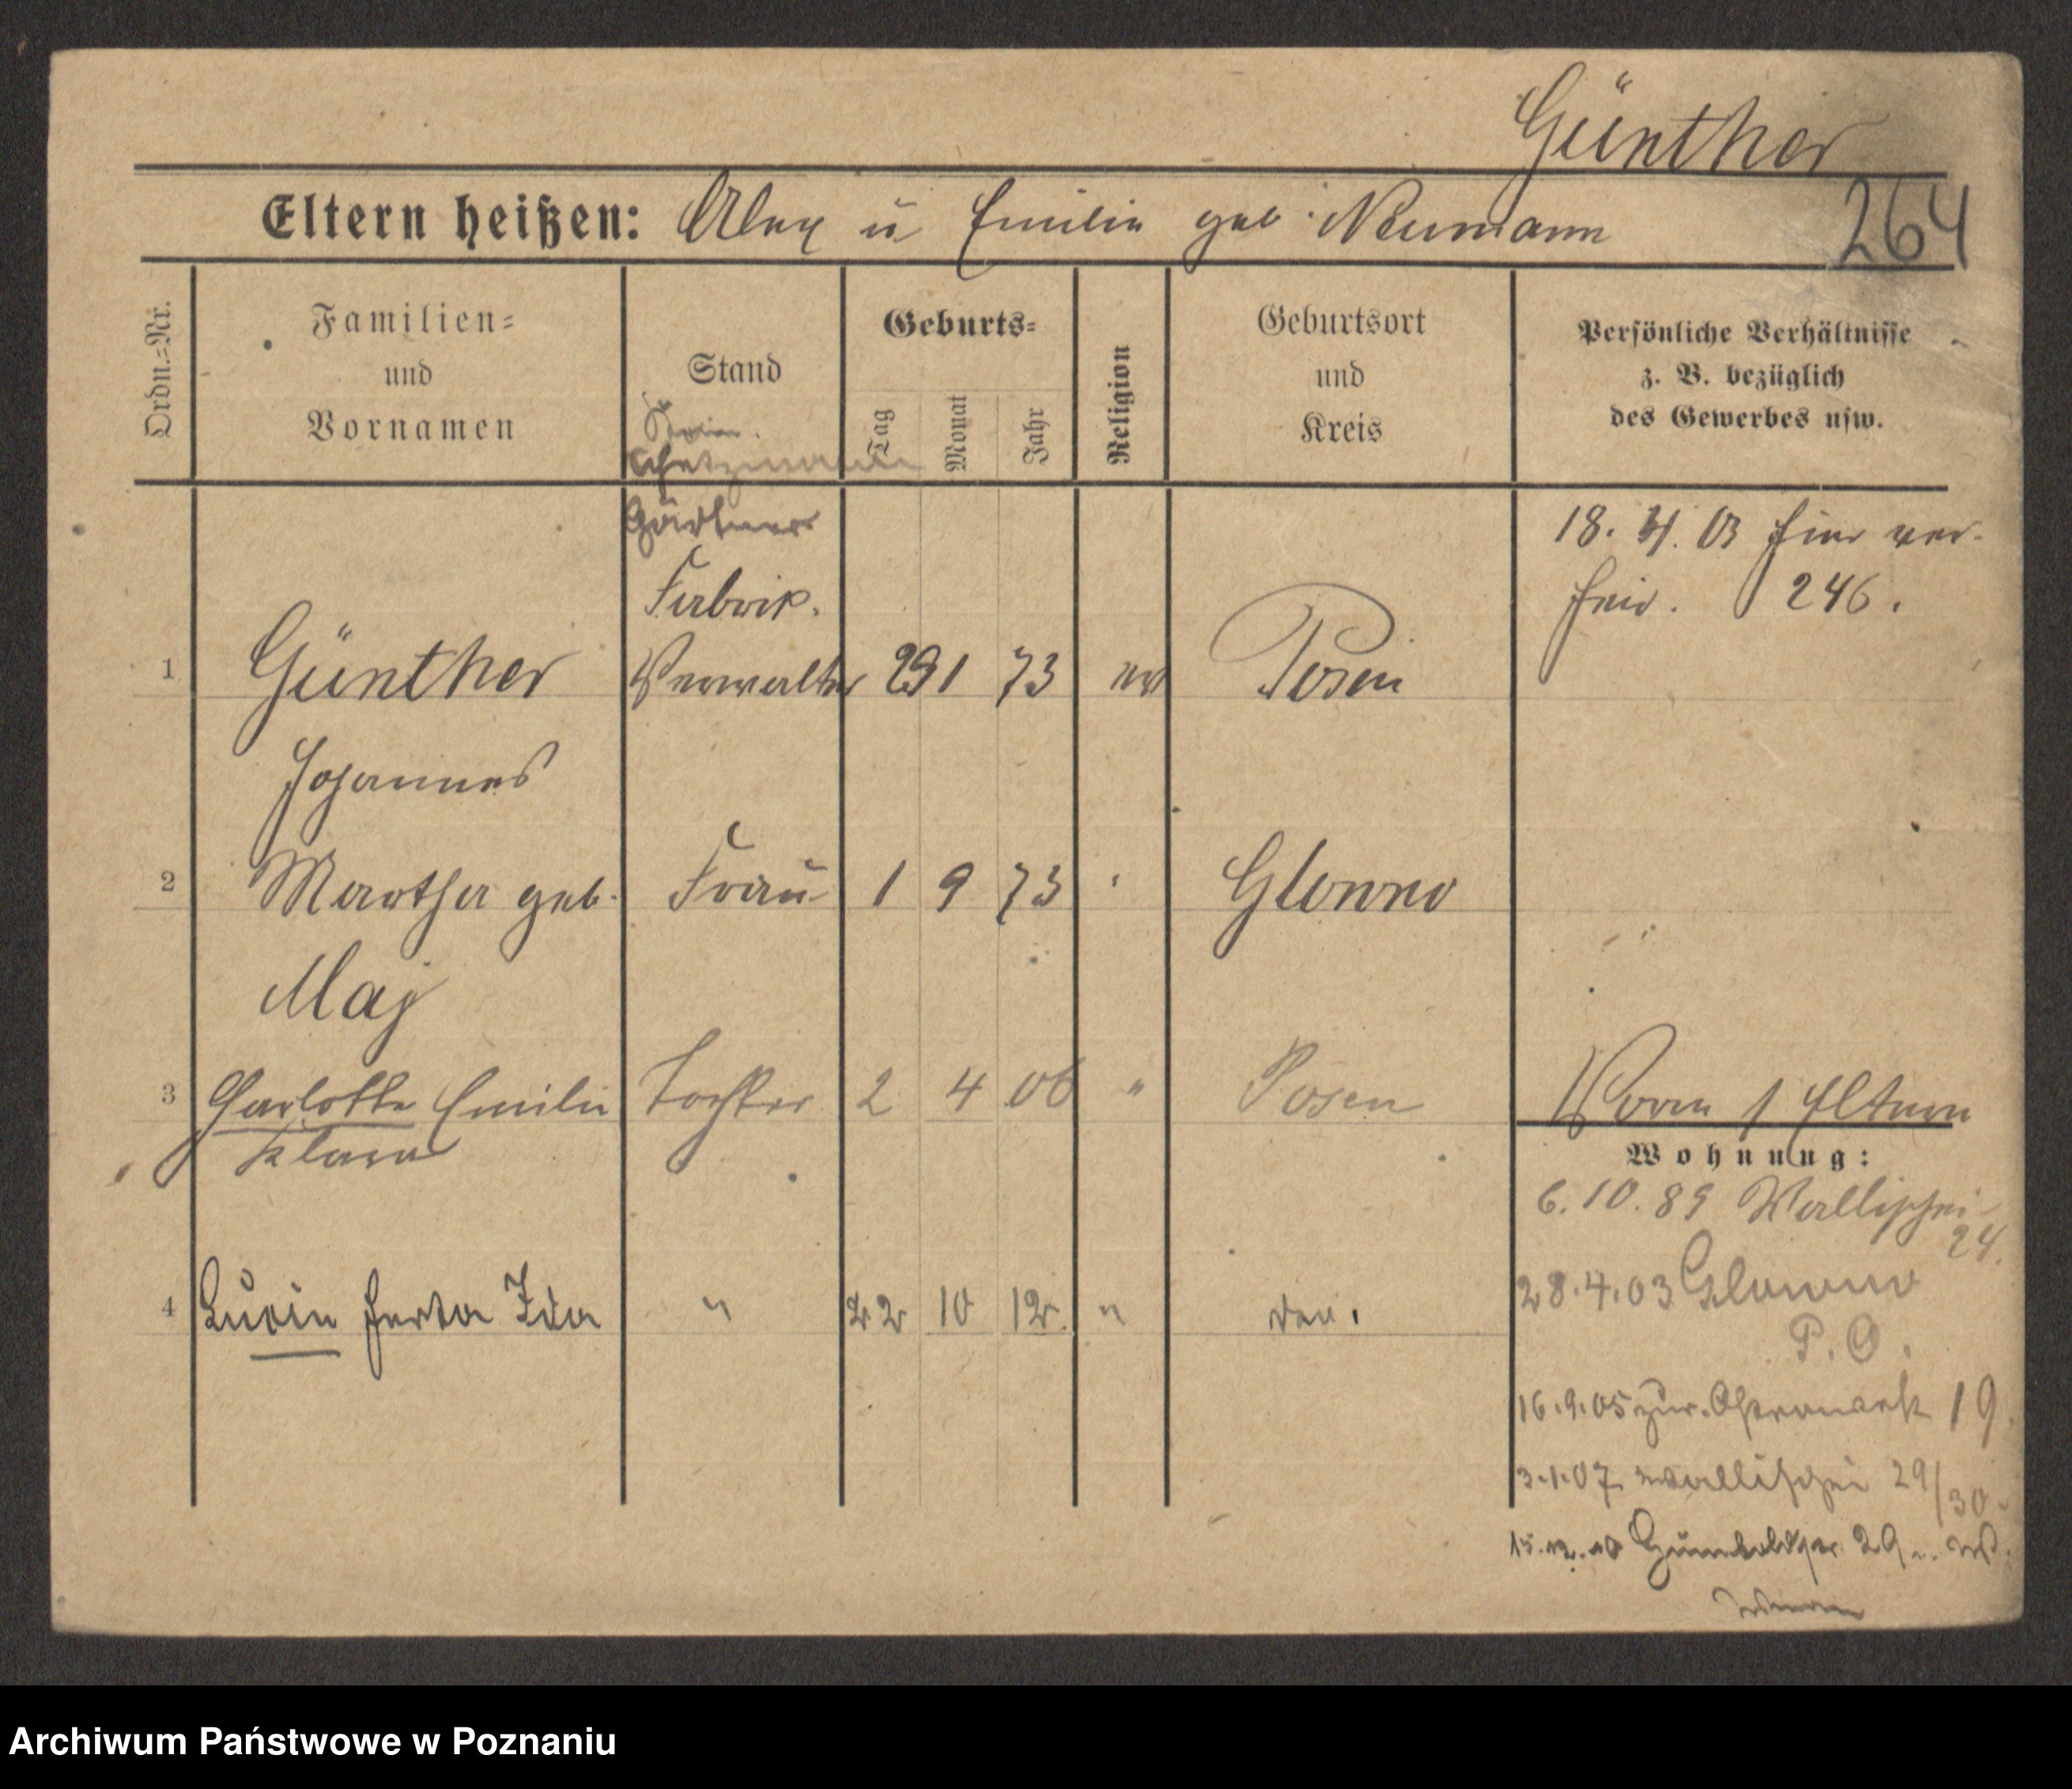 Günther
Eltern heißen: Alex u Emilie geb. Neumann 264
Ordn.-Nr.
Familien-
und
Vornamen
Stand
Geburts-
Tag
Monat
Jahr
Religion
Geburtsort
und
Kreis
Persönliche Verhältnisse
z. B. bezüglich
des Gewerbes usw.
Gärtner
18. 4. 03 hier ver-
Fabrik.
heir. 246.
1 Günther Verwalter 29 1 73 ev Posen
Johannes
2 Martha geb. Frau 1 9 73 " Glowno
Maj
3 Charlotte Emilie Tochter 2 4 06 " Posen
Klara
Vorm Eltern
Wohnung:
6. 10. 89 Wallischei
24.
4 Herta Ida " 22 10 12 "
28.4.03 Glowno
P. O.
16.9.05 19
3.1.07 Wallischei 29/30.
29